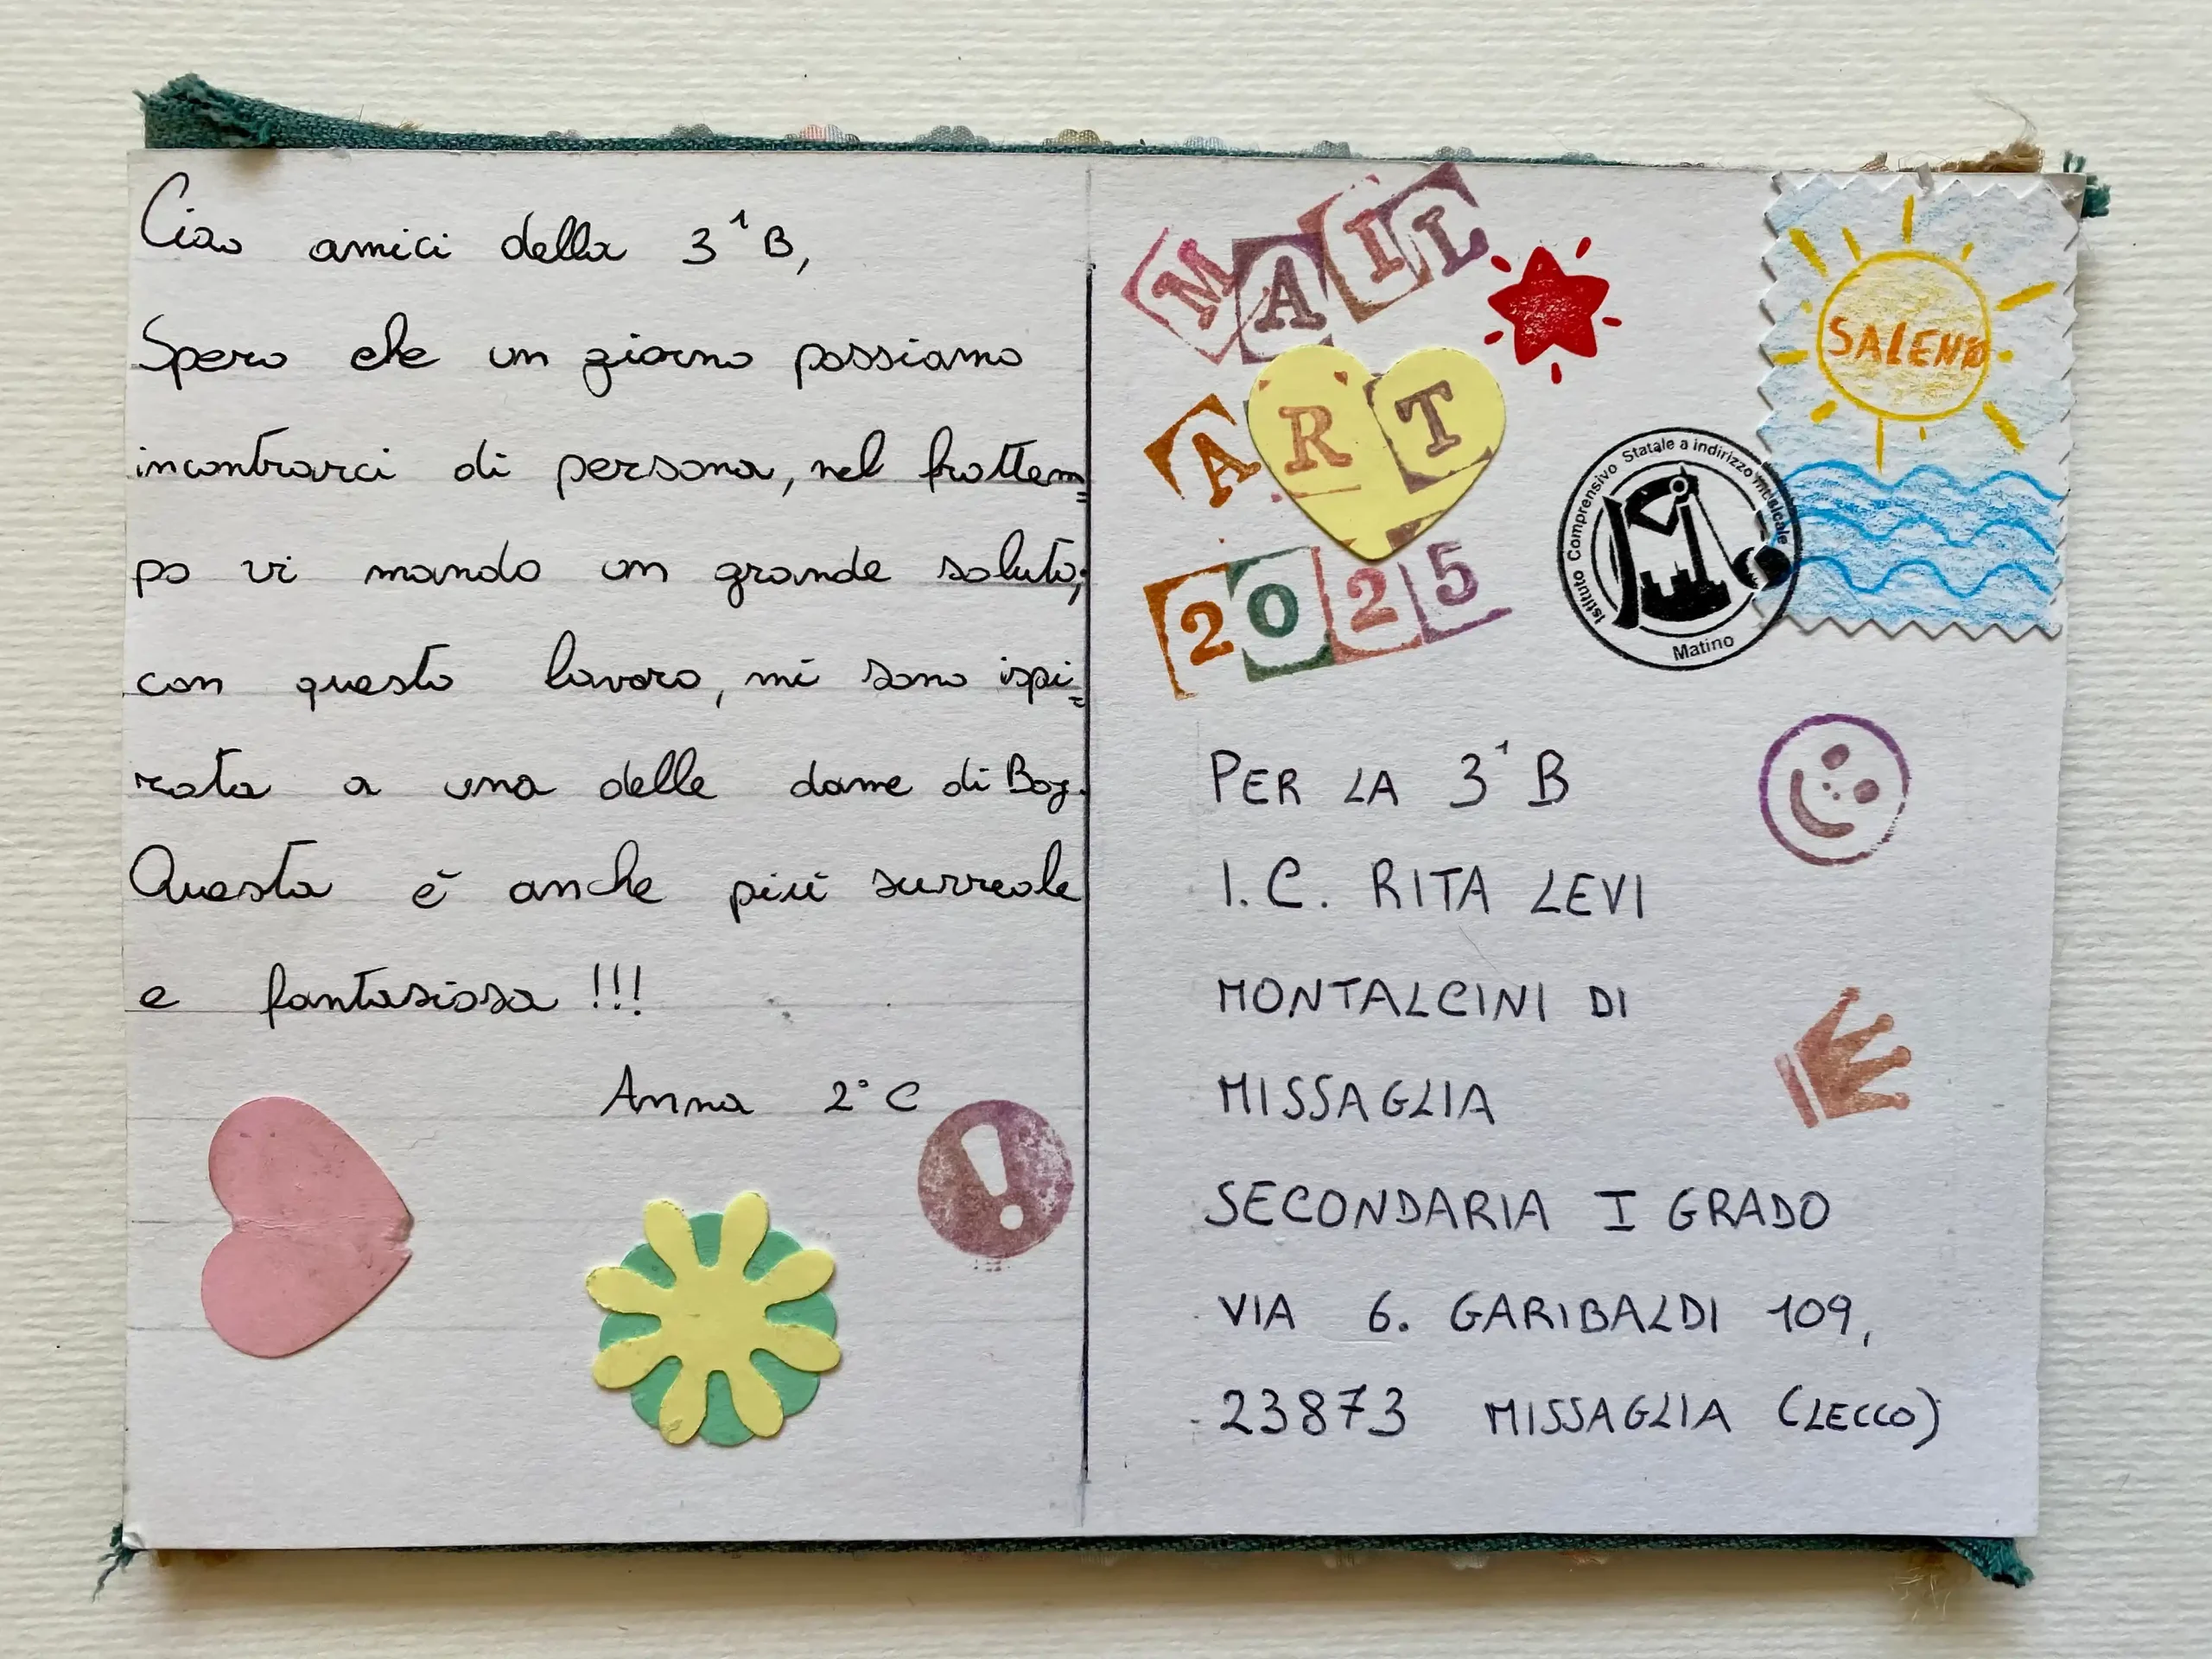 Ciao amici della 3¹B,
Spero che un giorno possiamo
incontrarci di persona, nel frattem=
po vi mando un grande saluto;
con questo lavoro, mi sono ispi=
rata a una delle dame di Baj.
Questa è anche più surreale
e fantasiosa !!!
Anna 2°C
MAIL
ART
2025
SALENTO
Istituto Comprensivo Statale a indirizzo musicale
Matino
PER LA 3¹B
I.C. RITA LEVI
MONTALCINI DI
MISSAGLIA
SECONDARIA I GRADO
VIA G. GARIBALDI 109,
23873 MISSAGLIA (LECCO)